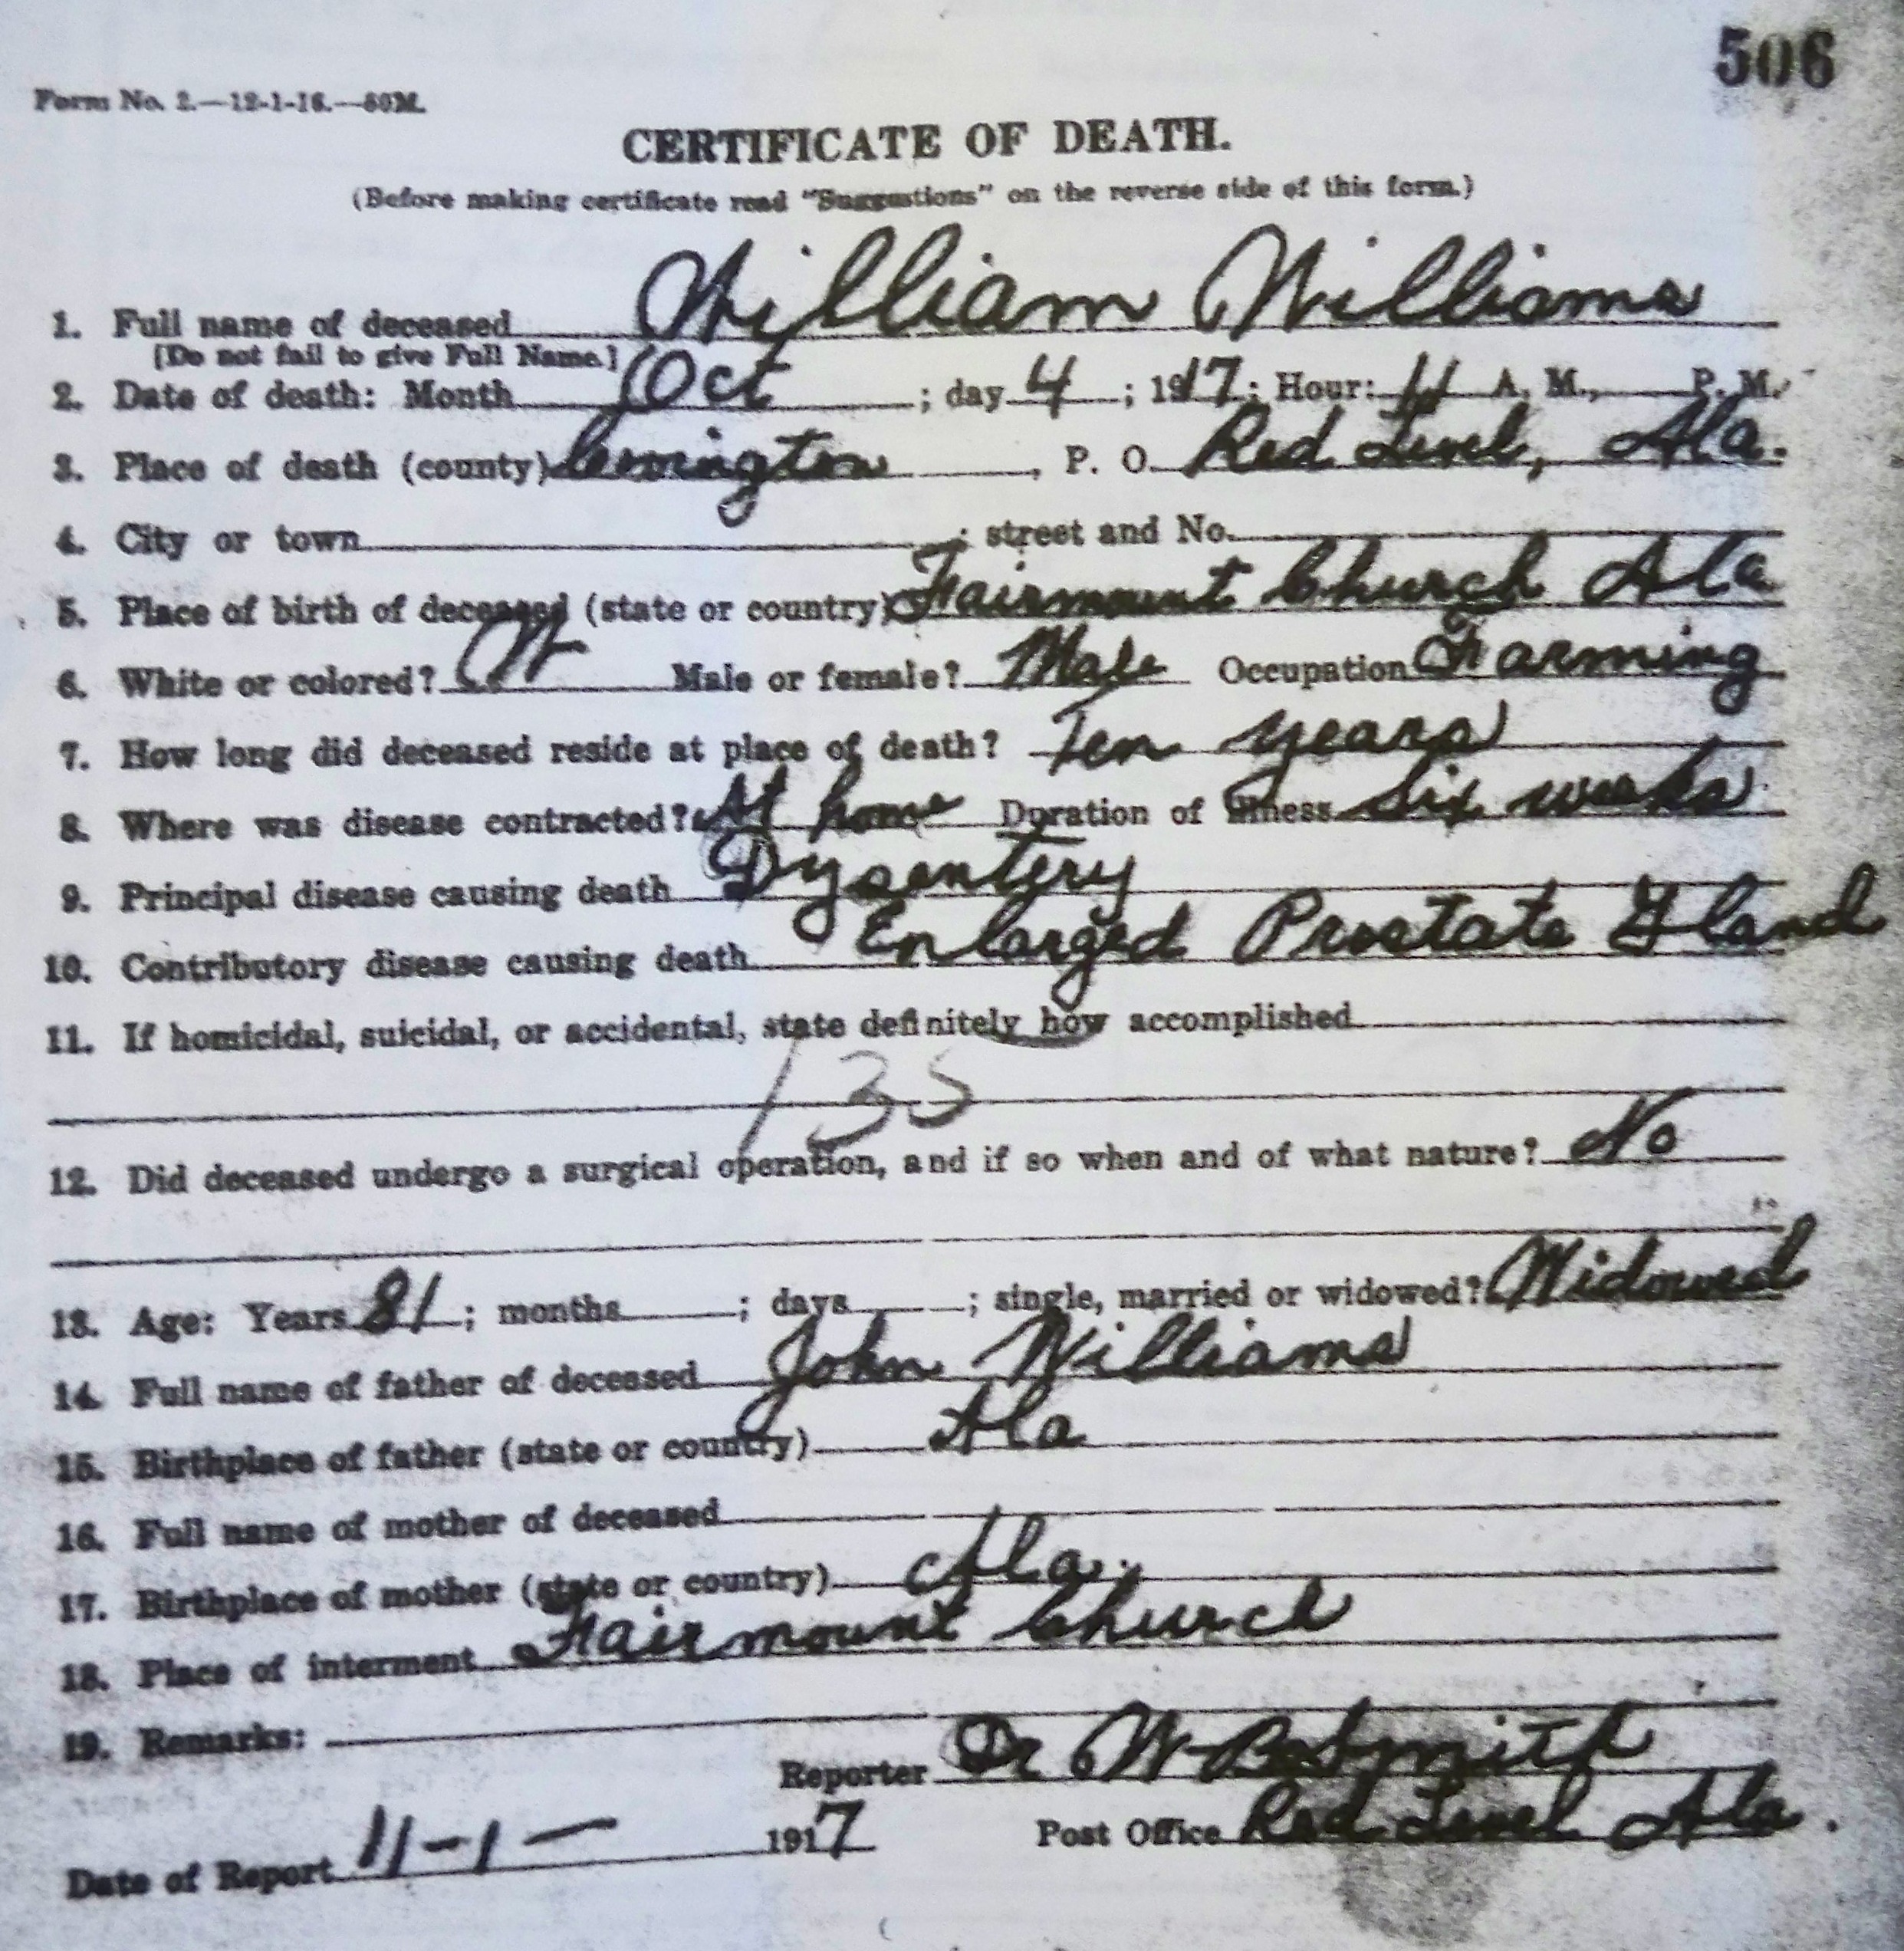 506
Form No. 2.—12-1-16.—60M.
CERTIFICATE OF DEATH.
(Before making certificate read "Suggestions" on the reverse side of this form.)
1. Full name of deceased William Williams
[Do not fail to give Full Name.]
2. Date of death: Month Oct ; day 4 ; 1917; Hour: 11 A. M., P. M.
3. Place of death (county) Covington, P. O. Red Level, Ala.
4. City or town ; street and No.
5. Place of birth of deceased (state or country) Fairmount Church Ala
6. White or colored? W Male or female? Male Occupation Farming
7. How long did deceased reside at place of death? Ten years
8. Where was disease contracted? At home Duration of illness Six weeks
9. Principal disease causing death Dysentery
10. Contributory disease causing death Enlarged Prostate Gland
11. If homicidal, suicidal, or accidental, state definitely how accomplished
135
12. Did deceased undergo a surgical operation, and if so when and of what nature? No
13. Age: Years 81; months ; days ; single, married or widowed? Widowed
14. Full name of father of deceased John Williams
15. Birthplace of father (state or country) Ala
16. Full name of mother of deceased
17. Birthplace of mother (state or country) Ala.
18. Place of interment Fairmount Church
19. Remarks:
Reporter Dr W B Smith
Date of Report 11-1- 1917 Post Office Red Level Ala.